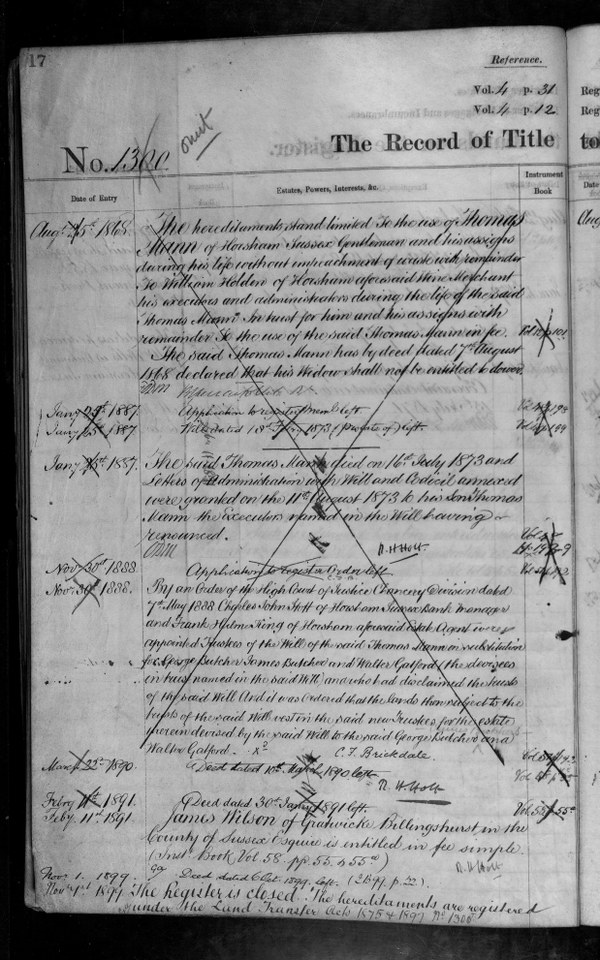 17
Reference.
Vol. 4 p. 31
Vol. 4 p. 12
omit
The Record of Title
No. 1300
Date of Entry
Estates, Powers, Interests, &c.
Instrument
Book
Augt. 25th 1868.
The hereditaments stand limited To the use of Thomas
Mann of Horsham Sussex Gentleman and his assigns
during his life without impeachment of waste with remainder
To William Holden of Horsham aforesaid Wine Merchant
his executors and administrators during the life of the said
Thomas Mann In trust for him and his assigns with
remainder To the use of the said Thomas Mann in fee.
The said Thomas Mann has by deed dated 7th August
1868 declared that his Widow shall not be entitled to dower.
Jany 25th 1887.
Application to register left.
Jany 25th 1887
Will dated 1873 (Probate of) left.
Jany 25th 1887.
The said Thomas Mann died on 16th July 1873 and
Letters of Administration with Will and Codicil annexed
were granted on the 11th August 1873 to his son Thomas
Mann the Executors named in the Will having
renounced.
R. H. Holt.
Novr 30th 1888.
Application to register Order left
Novr 30th 1888.
By an Order of the High Court of Justice Chancery Division dated
7th May 1888 Charles John of Horsham Sussex Bank Manager
and Frank Holmes King of Horsham aforesaid Estate Agent were
appointed Trustees of the Will of the said Thomas Mann in substitution
for George Butcher James Butcher and Walter Gatford (the devisees
in trust named in the said Will) and who had disclaimed the trusts
of the said Will And it was Ordered that the lands then subject to the
trusts of the said Will vest in the said new Trustees for the estate
therein devised by the said Will to the said George Butcher and
Walter Gatford.
C. F. Brickdale.
March 22nd 1890.
Deed dated 10th March 1890 left
R. H. Holt
Feby 11th 1891.
Deed dated 30th Jany 1891 left.
Vol. 58 p 55
Feby 11th 1891
James Wilson of Gratwicke Billingshurst in the
County of Sussex Esquire is entitled in fee simple.
(Inst. Book Vol. 58. pp. 55, & 55a)
R. H. Holt
Nov. 1. 1899.
Deed dated 6 Oct. 1899. left.
Nov 1st 1899
The Register is closed. The hereditaments are registered
under the Land Transfer Acts 1875 & 1897 No. 1300
Reg
Reg
to
Date
Aug